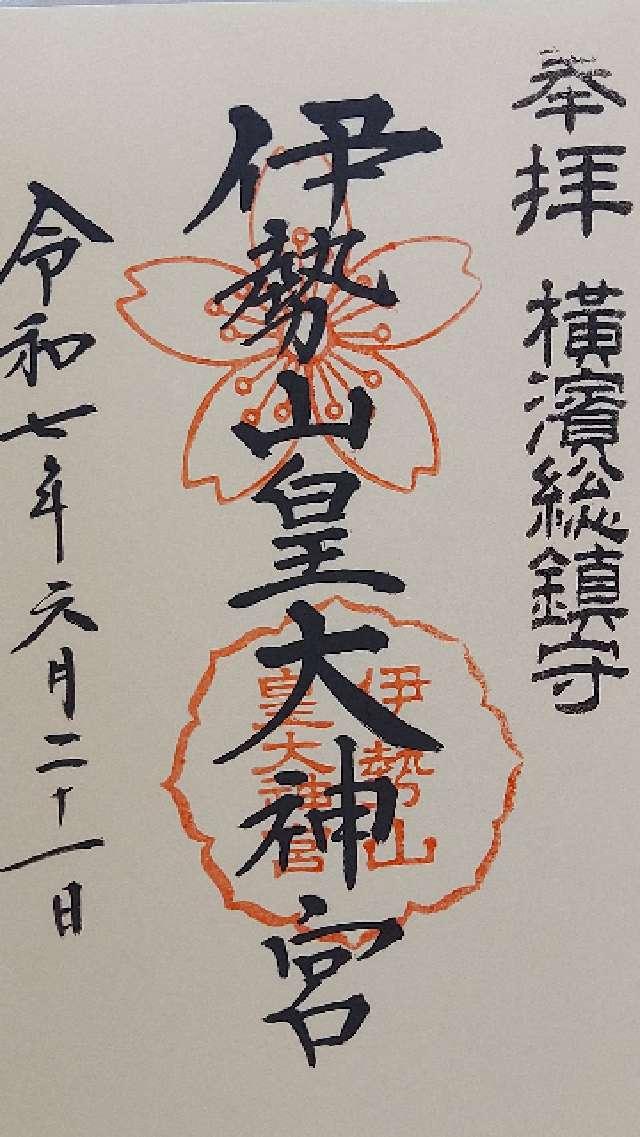 奉拝 横濱総鎮守
伊勢山皇大神宮
伊勢山
皇大神宮
令和七年六月二十一日